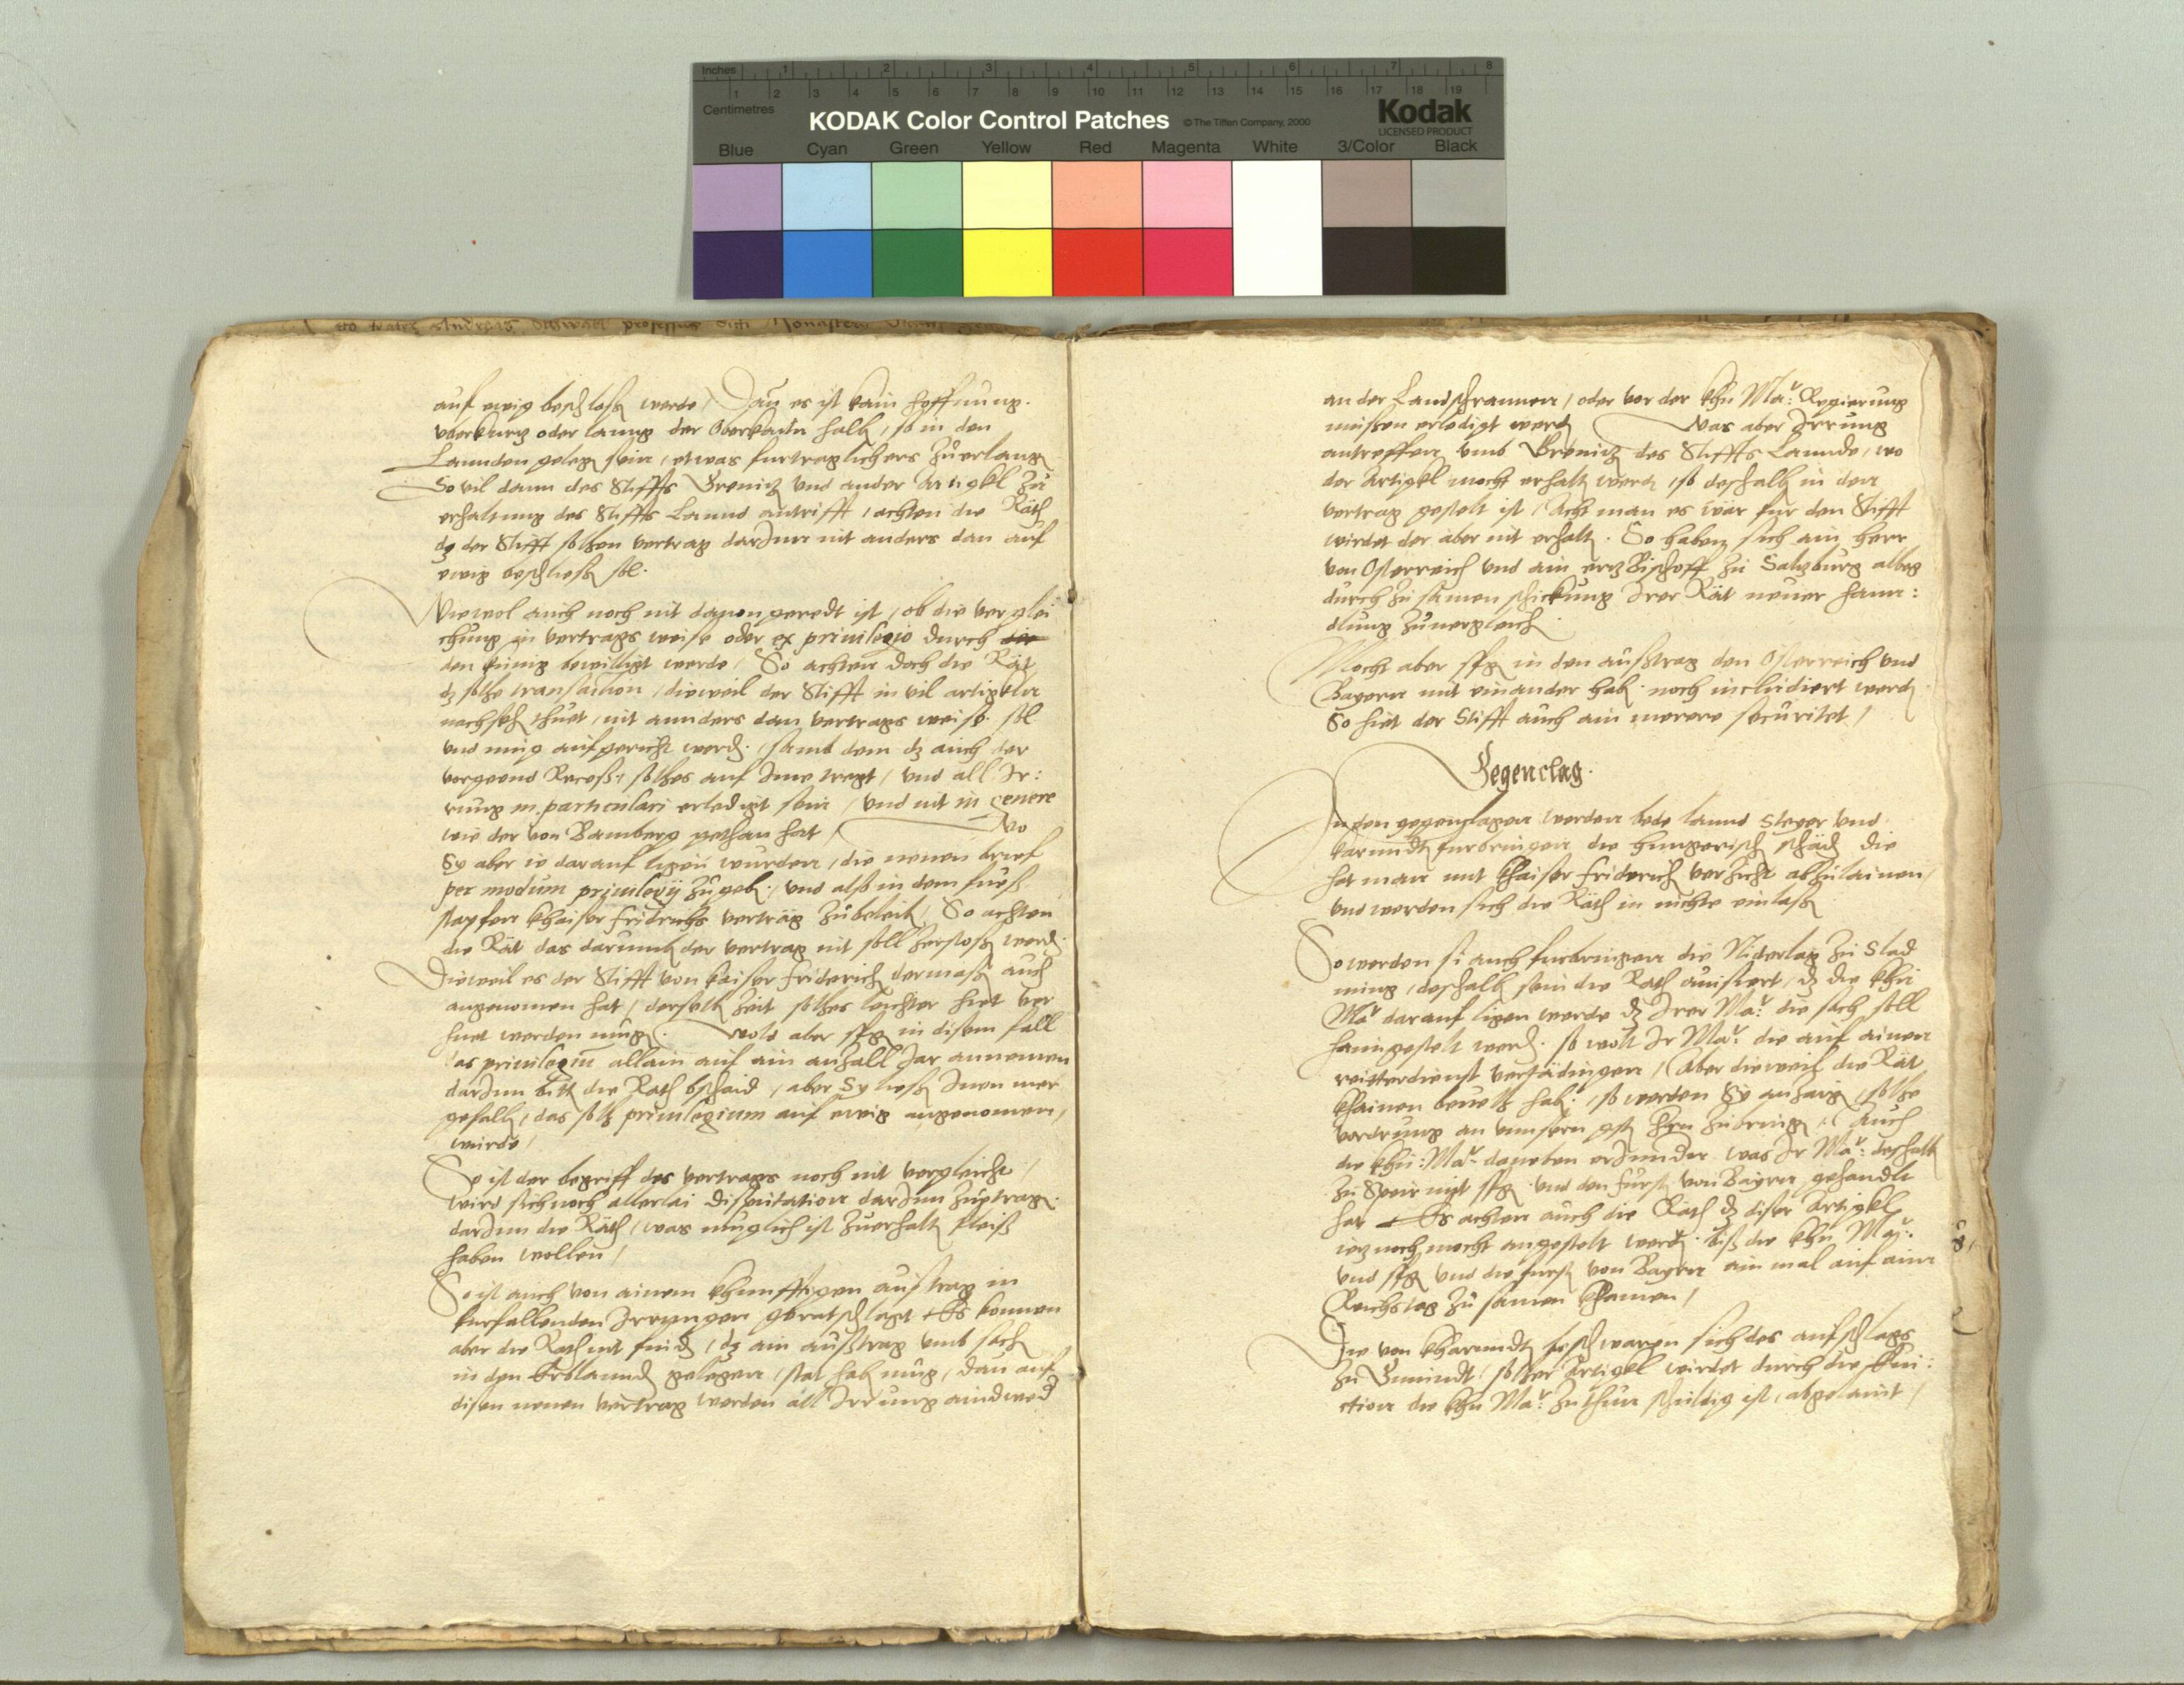 Inches 1 2 3 4 5 6 7 8
Centimetres 1 2 3 4 5 6 7 8 9 10 11 12 13 14 15 16 17 18 19
KODAK Color Control Patches © The Tiffen Company, 2000 Kodak
LICENSED PRODUCT
Blue Cyan Green Yellow Red Magenta White 3/Color Black
auf ewig beschloss werde / Dan es ist kain hoffnung.
uberkurtz oder lanng der Oberkaitn halb, so in den
Lannden geleg sein, etwas furtraglichers zuerlang
So vil dann des Stiffts Grenitz und ander Artigkl zu
erhaltung des Stiffts Lannd antrifft, achten die Räth
dz der Stifft solhen vertrag darInn nit anders dan auf
ewig beschliess sol.
Wiewol auch noch nit davon geredt ist, ob die verglei
chung in vertrags weise oder ex privilegio durch die
den kunig bewilligt werde / So achten doch die Rät
dz solhe transaction, dieweil der Stifft in vil artigkln
nachseh thuet, nit annders dan vertrags weiss. sol
und mug aufgericht werd. samt dem dz auch der
vorgeend Recess, solhes auf Ime tregt, und all Ir:
rung in particulari erledigt sein, und nit in genere
wie der von Bamberg gethan hat / Wo
Sy aber ie darauf ligen wurden, die neuen brief
per modum privilegij zugeb. und also in dem fuess
stapfen khaiser fridrichs verträg zubeleib, So achten
die Rät das darumb der vertrag nit soll zerstoss werd.
Dieweil es der Stifft von kaiser friderich dermass auch
angenomen hat, derselb zeit solhes leichter hiet ver
huet werden mug. Wold aber sfg in disem fall
das privilegium allain auf ain anzall Jar annemen
darInn bitt die Rath bschaid, aber Sy liess Inen mer
gefall, das solh privilegium auf ewig angenomen,
wurde /
So ist der begriff des vertrags noch nit vergleicht /
wird sich noch allerlai disputation darInn zuetrag.
darInn die Räth, was muglich ist zuerhalt fleiss
haben wollen /
So ist auch von ainem khunfftigen austrag in
furfallenden Irrungen geratschlagt Es konnen
aber die Rath nit find, dz ain ausstrag umb sach
in den Erblannd gelegen, stat hab mug, dan auf
disen neuen vertrag werden all Irrung aindwed
an der Landschrannen, oder vor der khu Mar: Regierung
muessen erledigt werd Was aber Irrung
antreffen umb Grenitz des Stiffts Lannde, wo
der Artigkl mocht erhalt werd, so deshalb in den
vertrag gestelt ist, Acht man es wär fur den Stifft
wirdet der aber nit erhalt. So haben sich ain herr
von Osterreich und ain ertzBischoff zu Saltzburg albeg
durch zusamen schickung Irer Rät neuer hann:
dlung zuvergleich
Mocht aber sfg in den ausstrag den Osterreich und
Bayern mit einander hab. noch includiert werd
So hiet der Stifft auch ain merere securitet /
Gegenclag.
In den gegenclagen werden bede lannd Steyer und
karnndt furbringen die hungerisch schäd die
hat man mit khaiser friderich verzicht abzulainen,
und werden sich die Räth in nichte einlass
So werden si auch furbringen die Niderlag zu Slad
ming, deshalb sein die Rath avisiert, dz die khu
Mar darauf ligen werde dz Irer Mar: die sach soll
haimgestelt werd. so woll Ir Mar: die auf ainen
reitterdienst vertädingen, Aber dieweil die Rät
khainen bevelh hab, so werden Sy anzaig, solhe
vordrung an unnsern gst hrn zubring, Auch
die khu: Mar: daneben erInnder was Ir Mar: deshalb
zu Speir mit sfg und den furst von Bayrn gehandlt
hat Es achten auch die Rath dz diser Artigkl
ietz noch mocht angestelt werd. biss die khu Mar:
und sfg und die furst von Bayrn ain mal auf ain
Reichstag zu samen khamen /
Die von kharnndt beschwaren sich des aufschlags
zu Gmundt, solher Artigkl wirdet durch die Evi:
ction die khu Mar: zuthun schuldig ist, abgelaint /